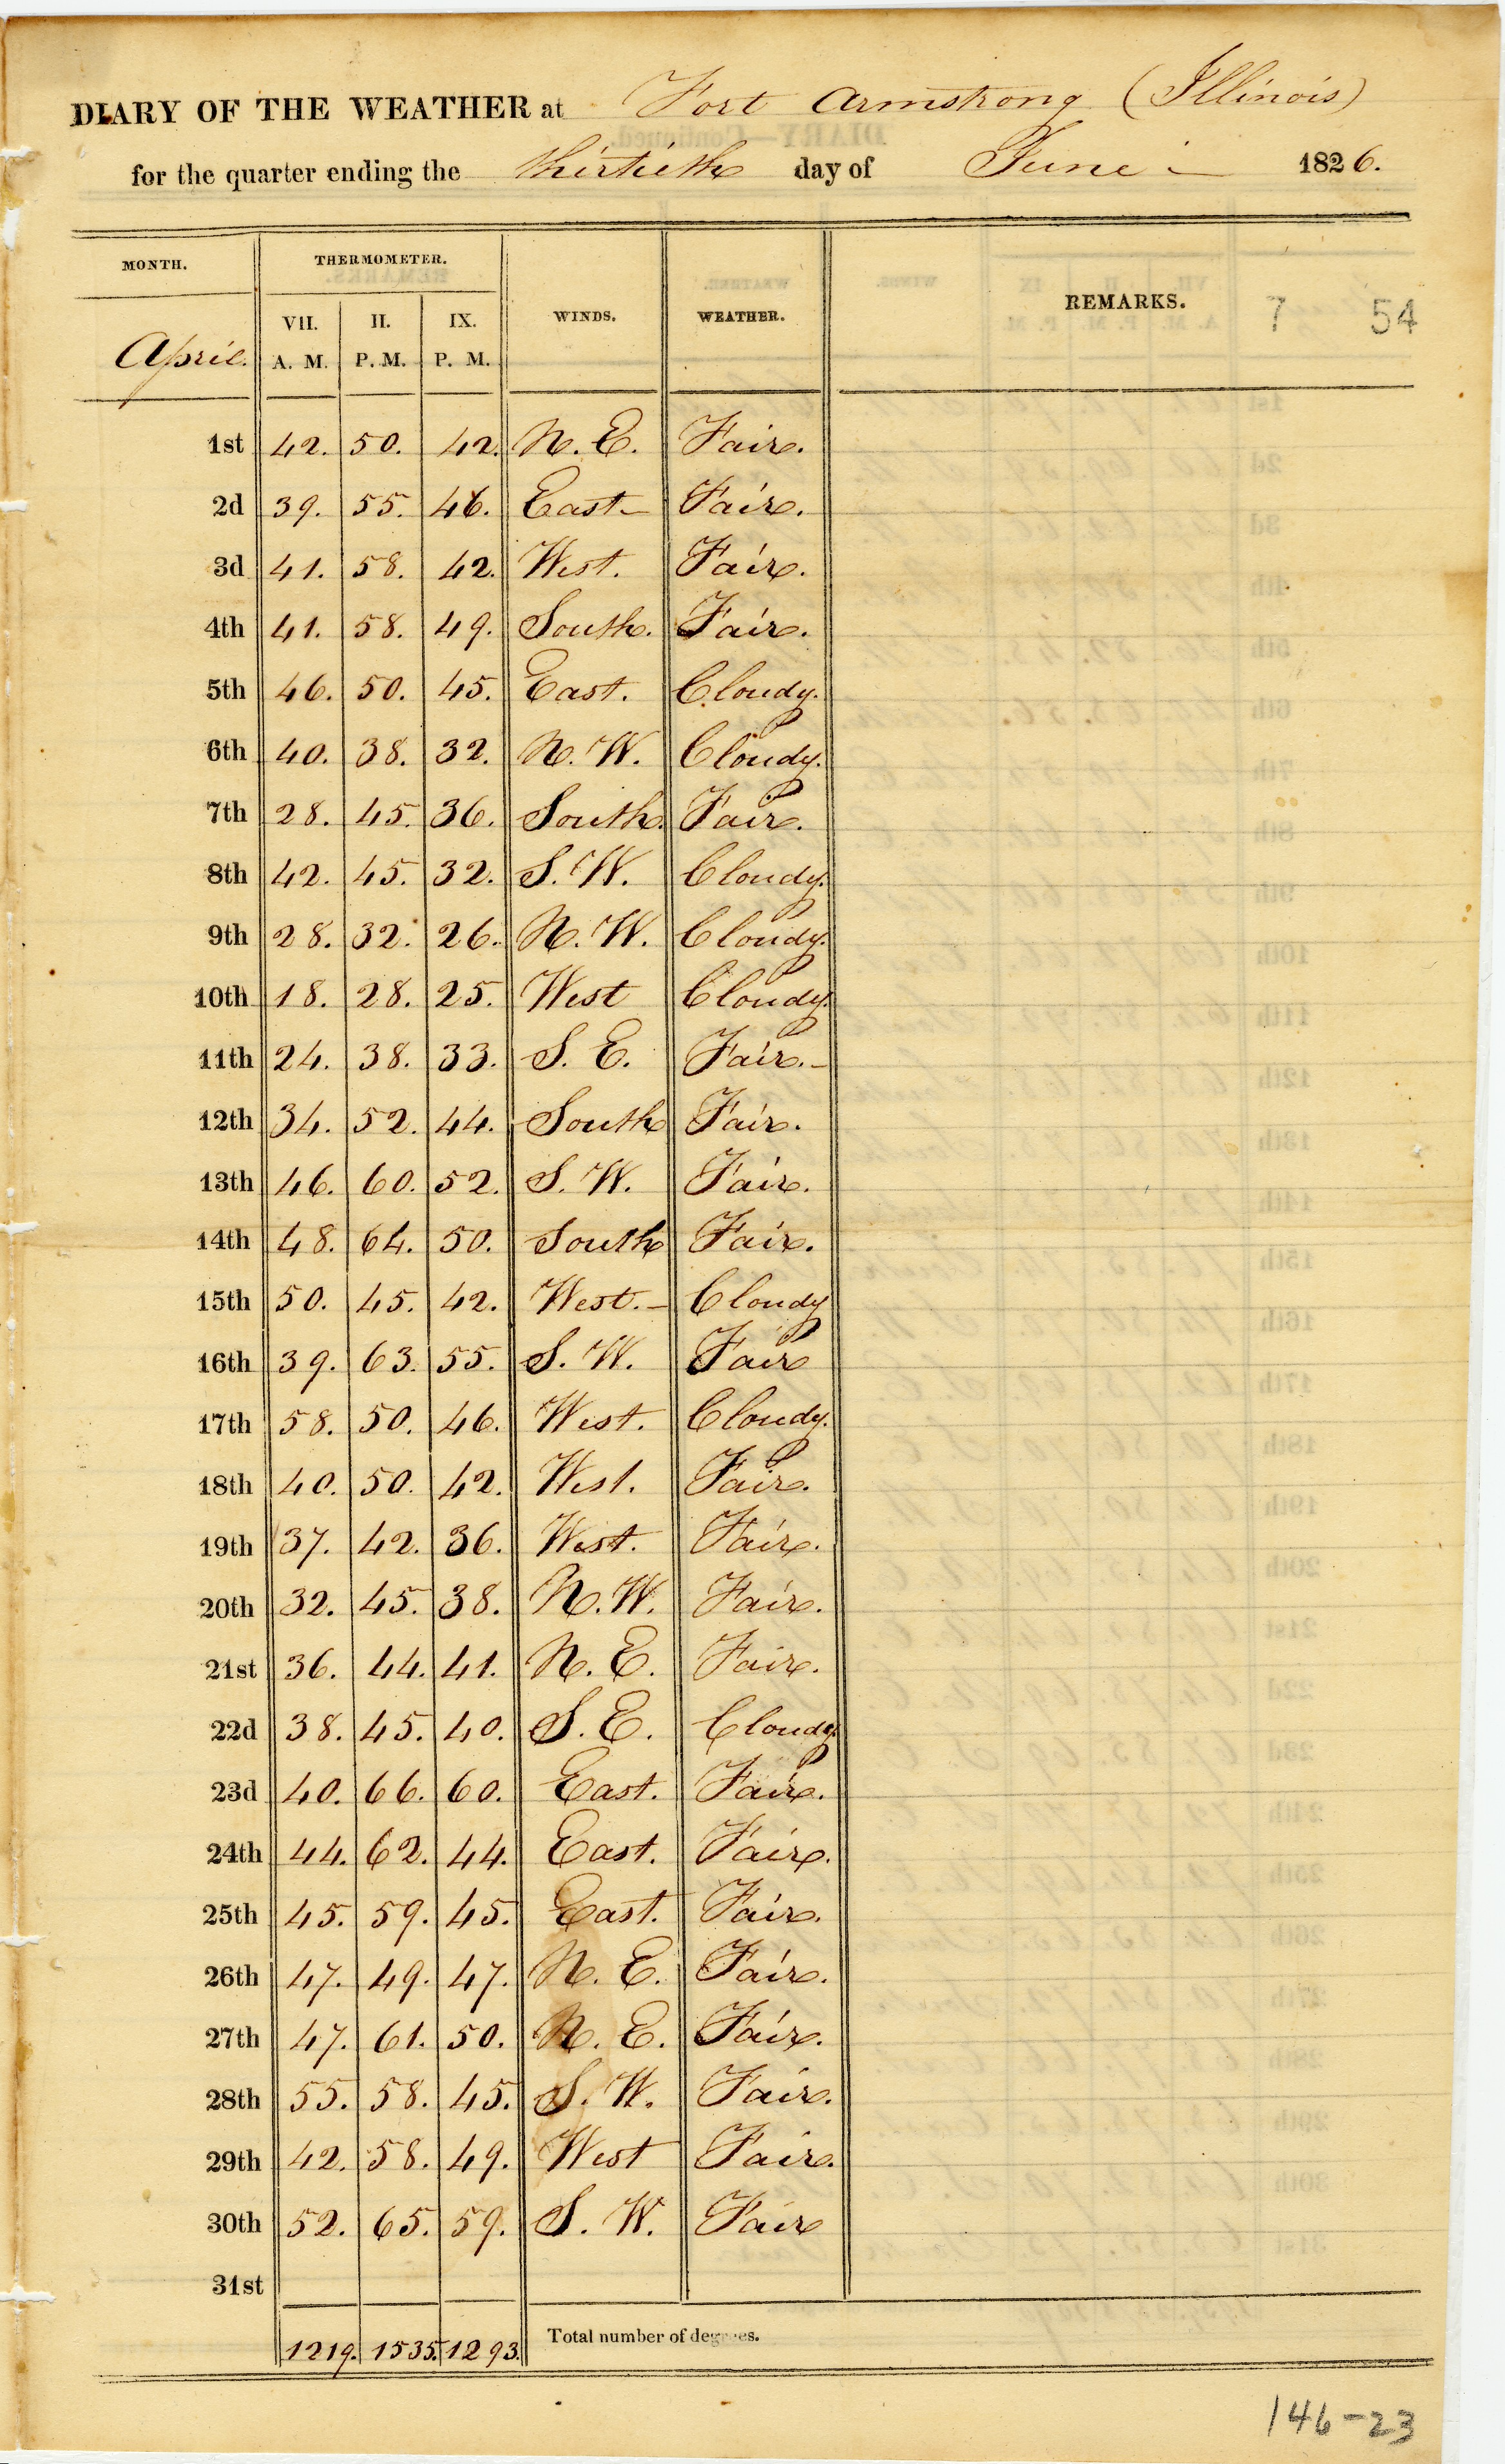 DIARY OF THE WEATHER at Fort Armstrong (Illinois)
for the quarter ending the thirtieth day of June 1826.
MONTH. THERMOMETER. WINDS. WEATHER. REMARKS. 7 54
April. VII. A. M. II. P. M. IX. P. M.
1st 42. 50. 42. N. E. Fair.
2d 39. 55. 46. East Fair.
3d 41. 58. 42. West. Fair.
4th 41. 58. 49. South. Fair.
5th 46. 50. 45. East. Cloudy.
6th 40. 38. 32. N. W. Cloudy.
7th 28. 45. 36. South. Fair.
8th 42. 45. 32. S. W. Cloudy.
9th 28. 32. 26. N. W. Cloudy.
10th 18. 28. 25. West Cloudy.
11th 24. 38. 33. S. E. Fair.
12th 34. 52. 44. South Fair.
13th 46. 60. 52. S. W. Fair.
14th 48. 64. 50. South Fair.
15th 50. 45. 42. West. Cloudy
16th 39. 63. 55. S. W. Fair
17th 58. 50. 46. West. Cloudy.
18th 40. 50. 42. West. Fair.
19th 37. 42. 36. West. Fair.
20th 32. 45. 38. N. W. Fair.
21st 36. 44. 41. N. E. Fair.
22d 38. 45. 40. S. E. Cloudy
23d 40. 66. 60. East. Fair.
24th 44. 62. 44. East. Fair.
25th 45. 59. 45. East. Fair.
26th 47. 49. 47. N. E. Fair.
27th 47. 61. 50. N. E. Fair.
28th 55. 58. 45. S. W. Fair.
29th 42. 58. 49. West Fair.
30th 52. 65. 59. S. W. Fair
31st
1219. 1535. 1293. Total number of degrees.
146-23